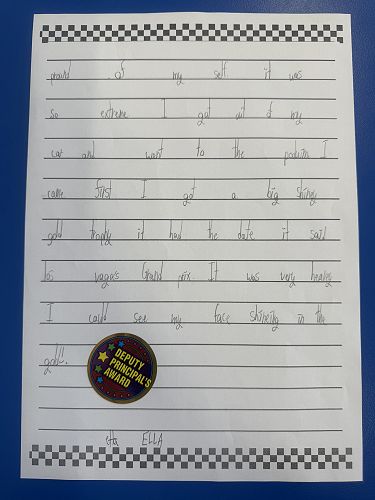 pround of my self it was
so extreme I got out of my
car and want to the podium I
came first I got a big shiney
gold trophy it had the date it said
las vagers Grand prix. It was very heavey
I could see my face shineing in the
gold!!.
DEPUTY
PRINCIPAL'S
AWARD
etta ELLA